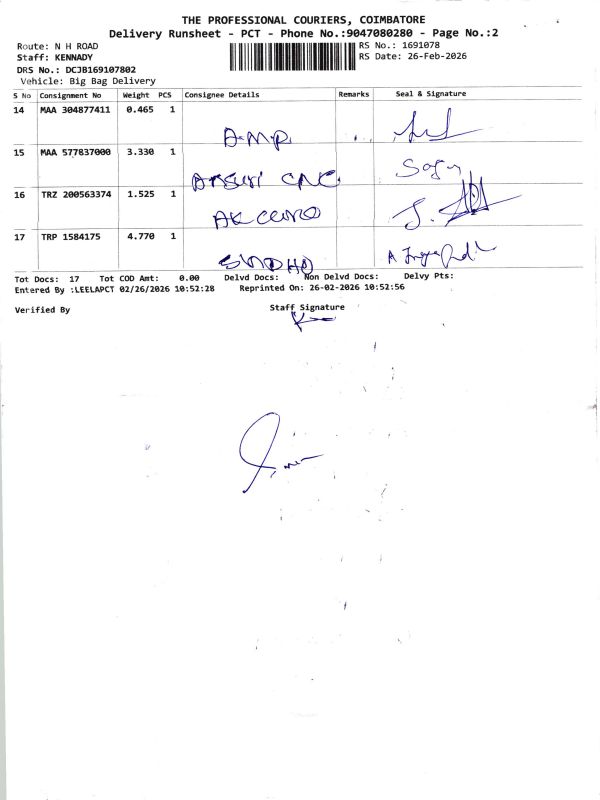 THE PROFESSIONAL COURIERS, COIMBATORE
Delivery Runsheet - PCT - Phone No.:9047080280 - Page No.:2
Route: N H ROAD
Staff: KENNADY
DRS No.: DCJB169107802
Vehicle: Big Bag Delivery
RS No.: 1691078
RS Date: 26-Feb-2026
S No Consignment No Weight PCS Consignee Details Remarks Seal & Signature
14 MAA 304877411 0.465 1
AMP
15 MAA 577837000 3.330 1
16 TRZ 200563374 1.525 1
17 TRP 1584175 4.770 1
Tot Docs: 17 Tot COD Amt: 0.00 Delvd Docs: Non Delvd Docs: Delvy Pts:
Entered By :LEELAPCT 02/26/2026 10:52:28 Reprinted On: 26-02-2026 10:52:56
Verified By Staff Signature